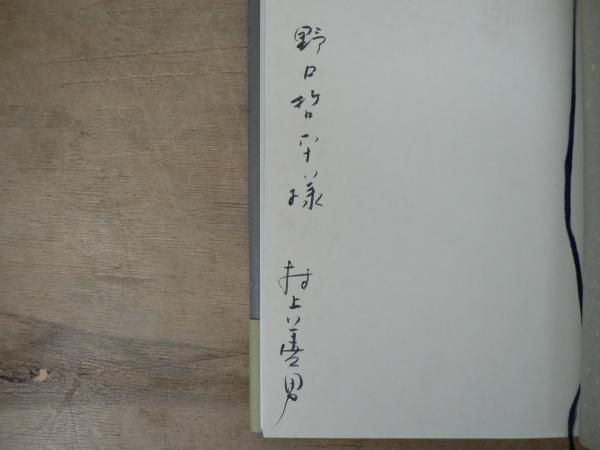 野口哲平様
村上善男